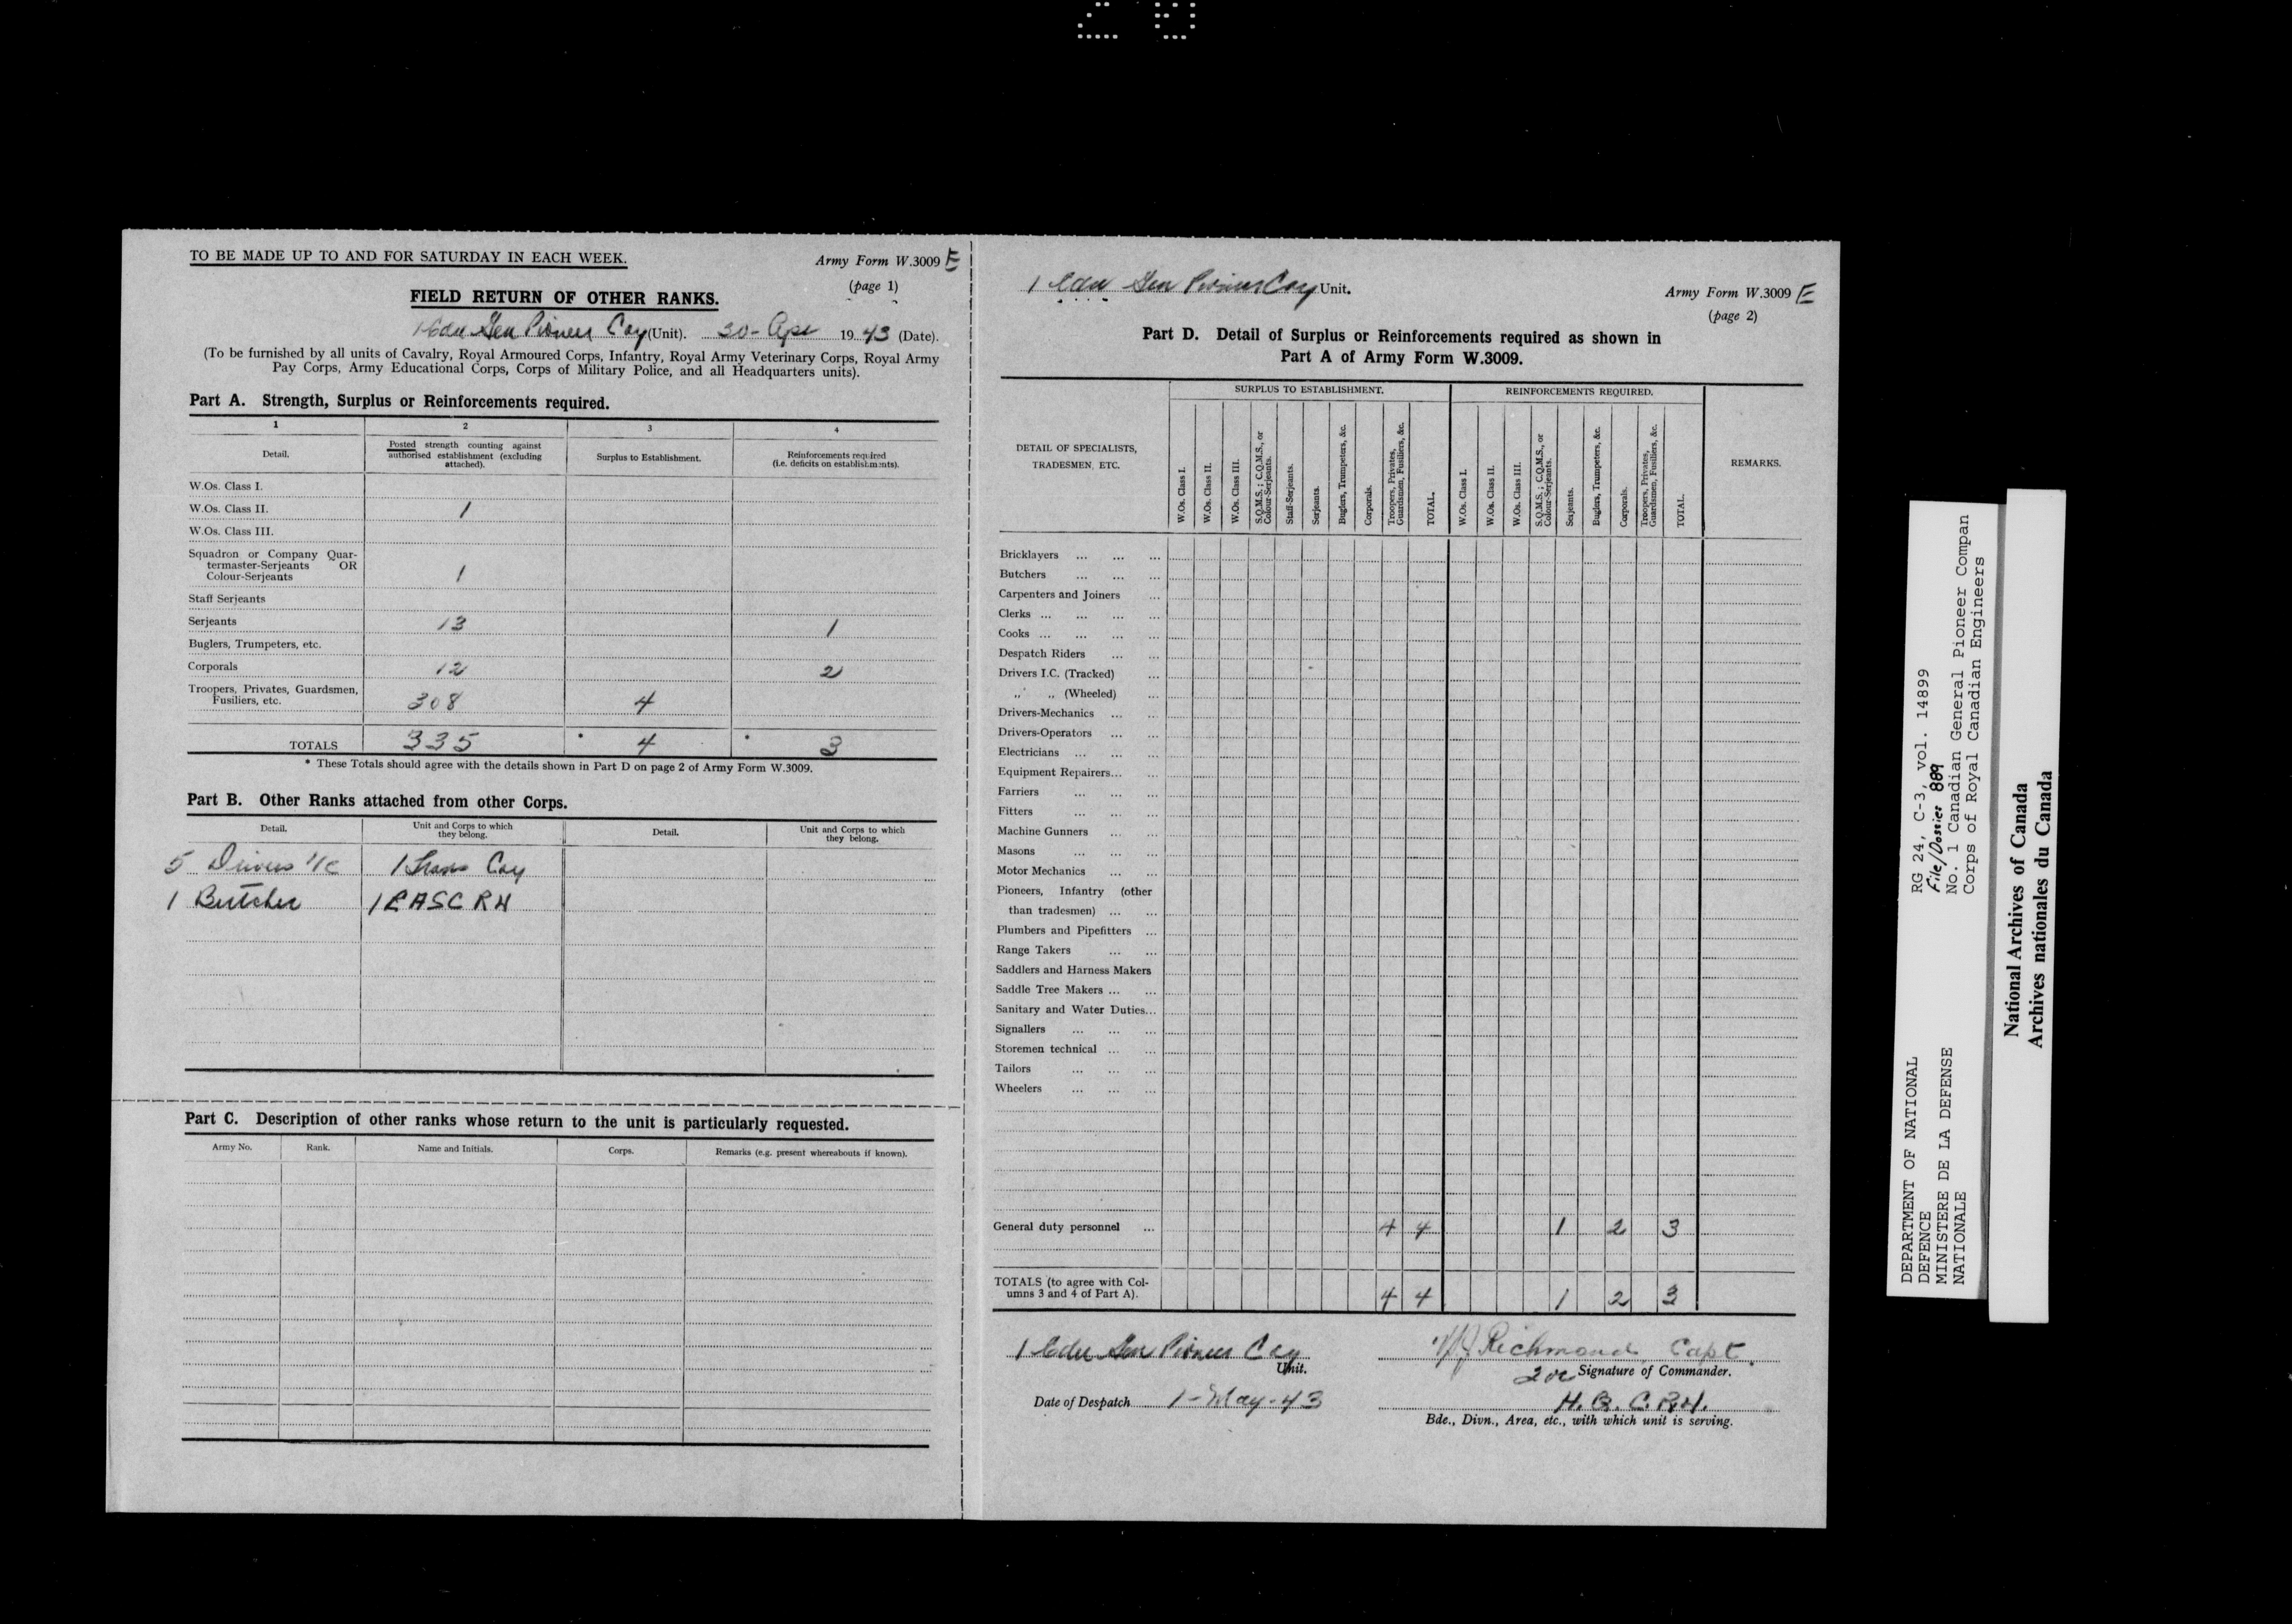 TO BE MADE UP TO AND FOR SATURDAY IN EACH WEEK.
Army Form W.3009 E
(page 1)
FIELD RETURN OF OTHER RANKS.
1 Cdn Gen Pioneer Coy (Unit). 30-Apr 1943 (Date).
(To be furnished by all units of Cavalry, Royal Armoured Corps, Infantry, Royal Army Veterinary Corps, Royal Army
Pay Corps, Army Educational Corps, Corps of Military Police, and all Headquarters units).
Part A. Strength, Surplus or Reinforcements required.
1 2 3 4
Detail.
Posted strength counting against
authorised establishment (excluding
attached).
Surplus to Establishment.
Reinforcements required
(i.e. deficits on establishments).
W.Os. Class I.
W.Os. Class II. 1
W.Os. Class III.
Squadron or Company Quar-
termaster-Serjeants OR
Colour-Serjeants 1
Staff Serjeants
Serjeants 13 1
Buglers, Trumpeters, etc.
Corporals 12 2
Troopers, Privates, Guardsmen,
Fusiliers, etc. 308 4
TOTALS 335 * 4 * 3
* These Totals should agree with the details shown in Part D on page 2 of Army Form W.3009.
Part B. Other Ranks attached from other Corps.
Detail.
Unit and Corps to which
they belong.
Detail.
Unit and Corps to which
they belong.
5 Drivers I/C 1 Trans Coy
1 Butcher 1 CASC RH
Part C. Description of other ranks whose return to the unit is particularly requested.
Army No. Rank. Name and Initials. Corps. Remarks (e.g. present whereabouts if known).
1 Cdn Gen Pioneer Coy Unit.
Army Form W.3009 E
(page 2)
Part D. Detail of Surplus or Reinforcements required as shown in
Part A of Army Form W.3009.
DETAIL OF SPECIALISTS,
TRADESMEN, ETC.
SURPLUS TO ESTABLISHMENT.
W.Os. Class I.
W.Os. Class II.
W.Os. Class III.
S.Q.M.S.; C.Q.M.S., or
Colour-Serjeants.
Staff-Serjeants.
Serjeants.
Buglers, Trumpeters, &c.
Corporals.
Troopers, Privates,
Guardsmen, Fusiliers, &c.
TOTAL.
REINFORCEMENTS REQUIRED.
W.Os. Class I.
W.Os. Class II.
W.Os. Class III.
S.Q.M.S.; C.Q.M.S., or
Colour-Serjeants.
Serjeants.
Buglers, Trumpeters, &c.
Corporals.
Troopers, Privates,
Guardsmen, Fusiliers, &c.
TOTAL.
REMARKS.
Bricklayers ... ... ...
Butchers ... ... ...
Carpenters and Joiners ...
Clerks ... ... ... ...
Cooks ... ... ... ...
Despatch Riders ... ...
Drivers I.C. (Tracked) ...
,, ,, (Wheeled) ...
Drivers-Mechanics ... ...
Drivers-Operators ... ...
Electricians ... ... ...
Equipment Repairers... ...
Farriers ... ... ...
Fitters ... ... ...
Machine Gunners ... ...
Masons ... ... ...
Motor Mechanics ... ...
Pioneers, Infantry (other
than tradesmen) ... ...
Plumbers and Pipefitters ...
Range Takers ... ...
Saddlers and Harness Makers
Saddle Tree Makers ... ...
Sanitary and Water Duties...
Signallers ... ... ...
Storemen technical ... ...
Tailors ... ... ...
Wheelers ... ... ...
General duty personnel ... 4 4 1 2 3
TOTALS (to agree with Col-
umns 3 and 4 of Part A). 4 4 1 2 3
1 Cdn Gen Pioneer Coy
Unit.
Richmond Capt.
2 i/c Signature of Commander.
Date of Despatch 1-May-43
H.Q. C.R.H.
Bde., Divn., Area, etc., with which unit is serving.
DEPARTMENT OF NATIONAL
DEFENCE
MINISTERE DE LA DEFENSE
NATIONALE
RG 24, C-3, vol. 14899
File/Dossier 889
No. 1 Canadian General Pioneer Compan
Corps of Royal Canadian Engineers
National Archives of Canada
Archives nationales du Canada